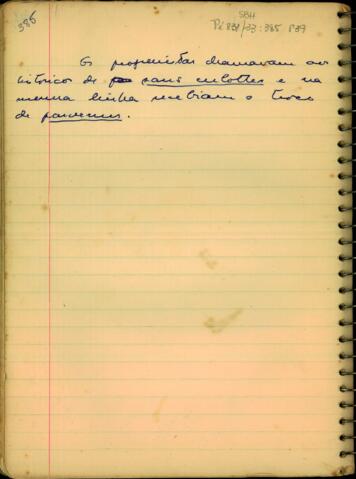 385
SBH
Pi 831/33: 385 P39
Os progressistas chamavam aos
históricos de sans culottes e na
mesma linha recebiam o troco
de parvenus.